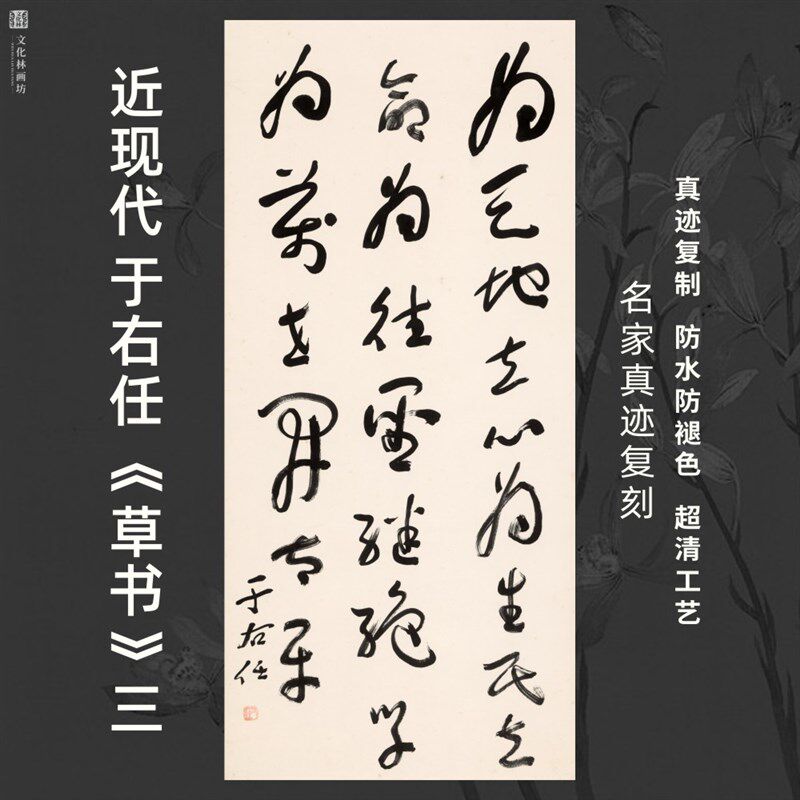 文化林画坊
近现代 于右任《草书》三
為天地立心為生民立
命為往聖繼絕學
為萬世開太平
于右任
真迹复制 防水防褪色 超清工艺
名家真迹复刻